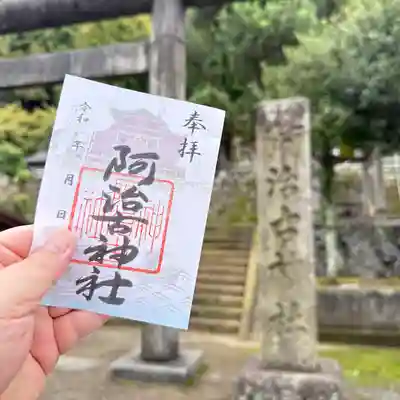 奉拝
阿治古神社
令和 年
月
日
阿治古神社